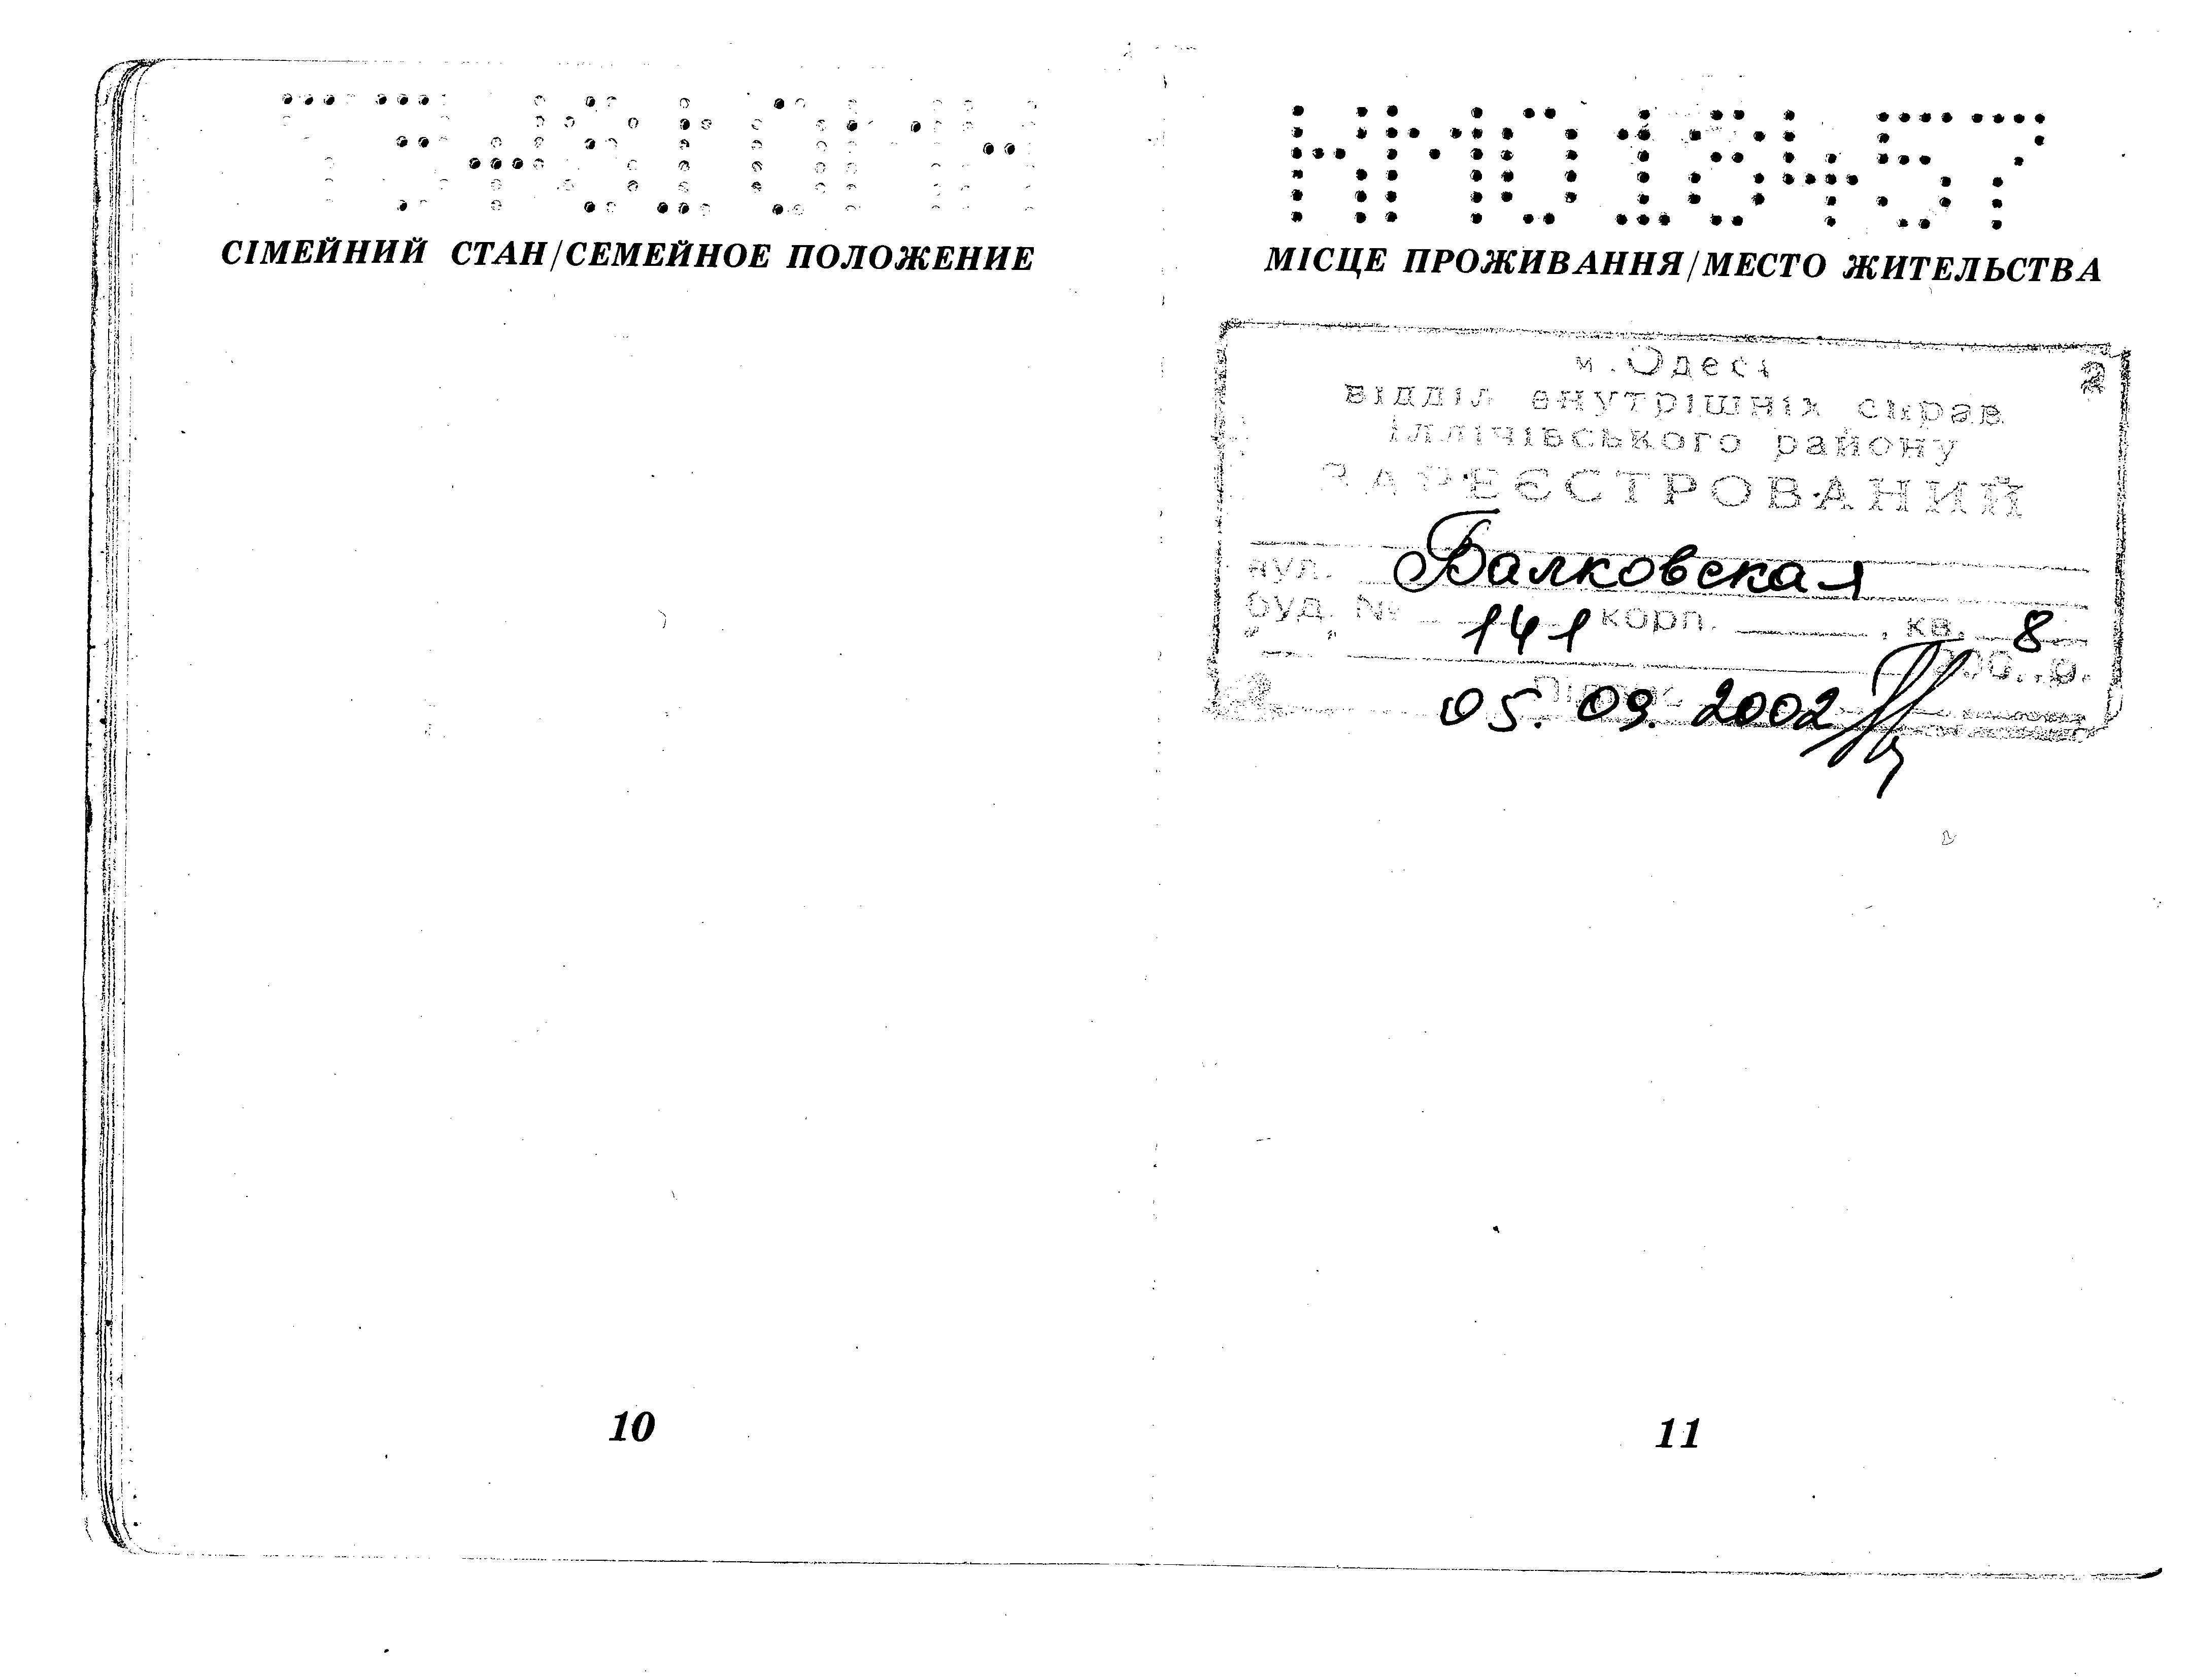 СІМЕЙНИЙ СТАН/СЕМЕЙНОЕ ПОЛОЖЕНИЕ
10
НМ018457
МІСЦЕ ПРОЖИВАННЯ/МЕСТО ЖИТЕЛЬСТВА
м. Одесі 2
відділ внутрішніх справ
іллічівського району
ЗАРЕЄСТРОВАНИЙ
вул. Балковская
буд. № 141 корп. , кв. 8
200 р.
05.09.2002
11